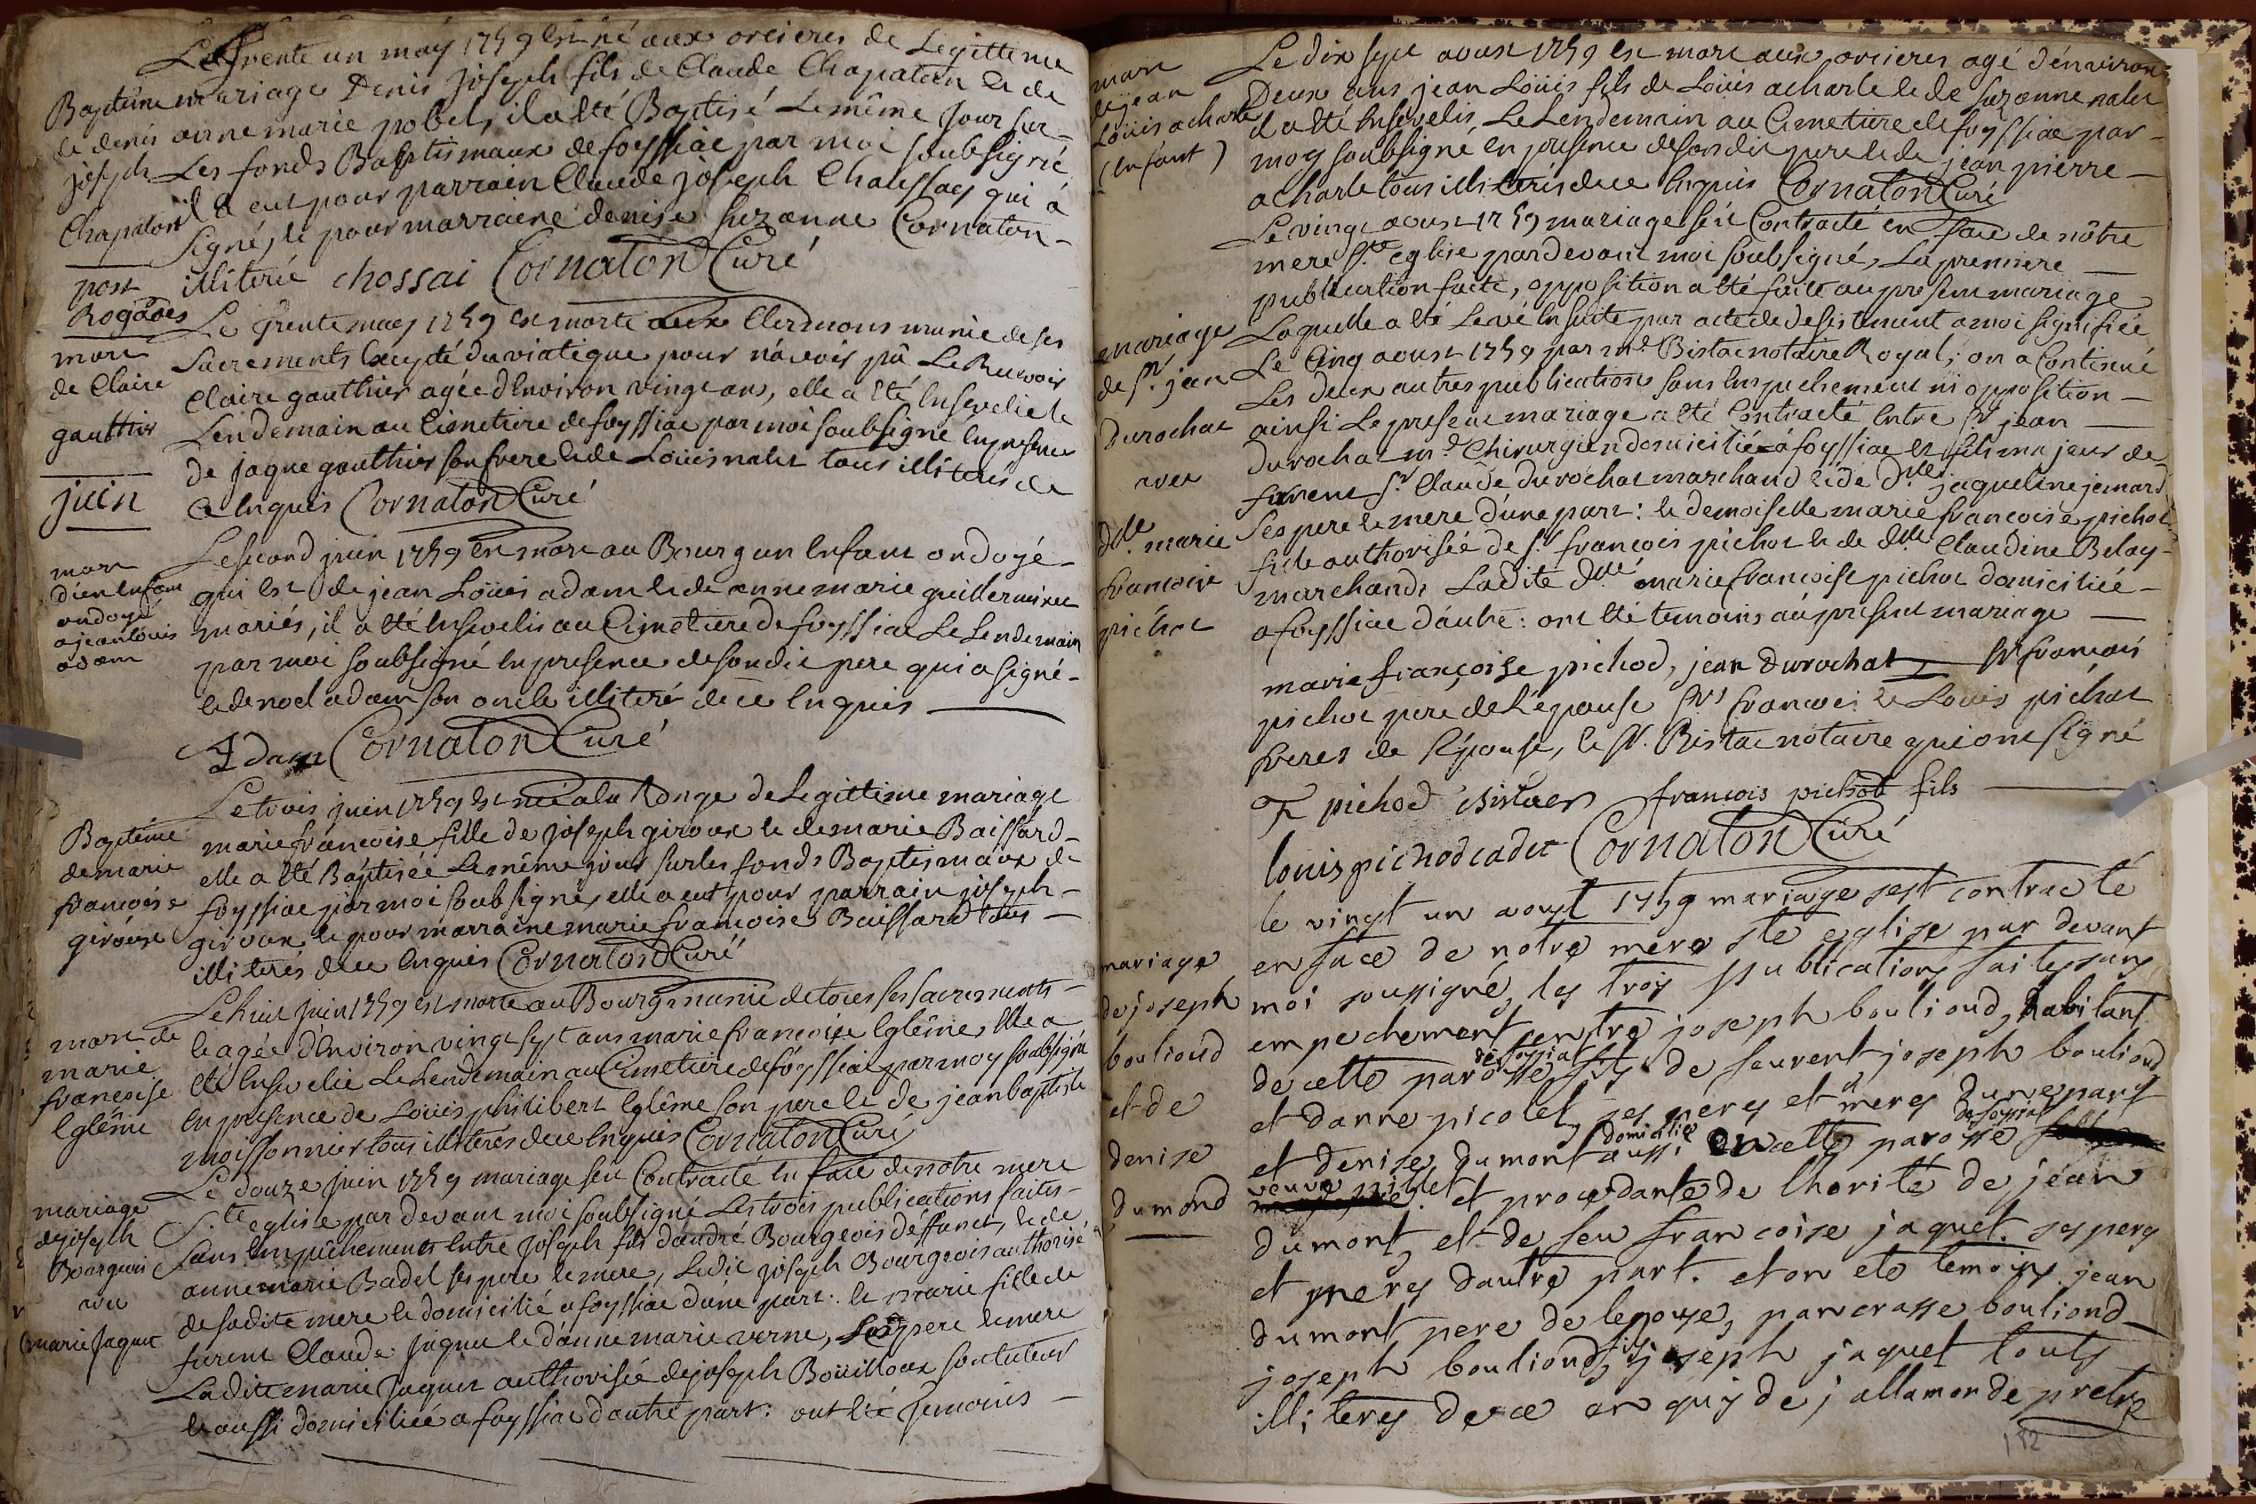 Le trente un may 1759 est né aux orcieres de Legittime
Baptême mariage Denis joseph fils de Claude Chapaton et de
de denis anne marie pobel, il a été Baptisé Le même jour sur
joseph Les fonds Baptismaux de foyssiac par moi soubsigné
Chapaton il a eut pour parrain Claude joseph Chaussay qui a
signé, et pour marraine denise suzanne Cornaton
illiteré chossai Cornaton Curé
post
Rogâoes
Le trente may 1759 est morte aux Clermons munie de ses
mort
de Claire
gauthier
sacrements Excepté du viatique pour n'avoir pû Le Recevoir
Claire gauthier agée d'Environ vingt ans, elle a été Ensevelie le
Lendemain au Cimetiere de foyssiac par moi soubsigné En presence
de jaque gauthier son frere et de Loüis nalet tous illiterés de
ce Enquis Cornaton Curé
juin
mort
d'un Enfant
ondoyé
a jean Louis
adam
Le second juin 1759 Est mort au Bourg un Enfant ondoyé
qui est de jean Loüis adam et de anne marie guillerminet
mariés, il a été Ensevelis au Cimetiere de foyssiac Le Lendemain
par moi soubsigné En presence de sondit pere qui a signé
et de noel adam son oncle illiteré de ce Enquis
Adam Cornaton Curé
Baptême
de marie
françoise
giroux
Le trois juin 1759 Est née a la Ronge de Legittime mariage
marie françoise fille de joseph giroux et de marie Baissard
elle a été Baptisée Le même jour sur les fonds Baptismaux de
foyssiac par moi soubsigné, elle a eut pour parrain joseph
giroux et pour marraine marie françoise Baissard tous
illiterés de ce Enquis Cornaton Curé
mort de
marie
françoise
Eglême
Le huit juin 1759 est morte au Bourg munie de tous ses sacrements
et agée d'Environ vingt sept ans marie françoise Eglême, Elle a
été Ensevelie Le Lendemain au Cimetiere de foyssiac par moy soubsigné
En presence de Loüis philibert Eglême son pere et de jean baptiste
moissonnier tous illiterés de ce Enquis Cornaton Curé
mariage
de joseph
Bourgeois
avec
marie Jaquet
Le douze juin 1759 mariage s'Est Contracté En face de notre mere
S.te eglise par devant moi soubsigné Les trois publications faites
sans Empêchements Entre joseph fils d'andré Bourgeois deffunct, et de
anne marie Badel ses pere et mere, Ledit joseph Bourgeois authorisé
de sadite mere et domicilié a foyssiac d'une part: et marie fille de
furent Claude Jaque et d'anne marie verne, ses pere et mere
Ladite marie Jaquet authorisée de joseph Boüilloux son tuteur
et aussi domiciliée a foyssiac d'autre part: ont été temoins
mort
de jean
Loüis acharle
(Enfant)
Le dix sept aoust 1759 est mort aux orcieres agé d'énviron
Deux ans jean Loüis fils de Loüis acharle et de suzanne nalet
il a été Ensevelis Le Lendemain au Cimetiere de foyssiac par
moy soubsigné En presence de sondit pere et de jean pierre
acharle tous illiterés de ce Enquis Cornaton Curé
mariage
de Sr. jean
Durochat
avec
Dlle. marie
françoise
pichot
Le vingt aoust 1759 mariage s'est Contracté en face de nôtre
mere S.te eglise pardevant moi soubsigné, La premiere
publication faite, opposition a été faite au present mariage
Laquelle a été Levé Ensuite par acte de desistement a moi signifiée
Le Cinq aoust 1759 par me. Bistac notaire Royal; on a Continué
Les deux autres publications sans Empechement ni opposition
ainsi Le present mariage a été Contracté Entre Sr jean
durochat m.e Chirurgien domicilié a foyssiac et fils majeur de
furent Sr Claude durochat marchand et de Dlle jaqueline jemard
ses pere et mere d'une part: et demoiselle marie françoise pichot
fille authorisée de Sr françois pichot et de dlle Claudine Belay
marchands Ladite dlle marie françoise pichot domiciliée
a foyssiac d'autre: ont été temoins au present mariage
marie françoise pichod, jean durochat Sr françois
pichot pere de L'épouse Srs françois et Loüis pichot
freres de l'épouse, et Sr. Bistac notaire qui ont signé
F pichod Bistac françois pichod fils
louis pichod cadet Cornaton Curé
mariage
de joseph
bouliond
et de
denise
dumond
le vingt un aoust 1759 mariage sest contracte
en face de notre mere ste eglise par devant
moi soussigné, les trois publications faites sans
empechement entre joseph bouliond, habitant
de cette paroisse de foyssiat fils de feurent joseph bouliond
et danne picolet, ses peres et meres dune part
et denise dumont domicilie aussi en cette paroisse de foyssiat
veuve pillet et procedante de lhorité de jean
dumont et de feu francoise jaquet ses pere
et meres dautre part. et on ete temoins jean
dumont pere de lepouse, pancrasse bouliond
joseph bouliond, fils joseph jaquet touts
illiteres de ce an quis de j allamonde pretre
112